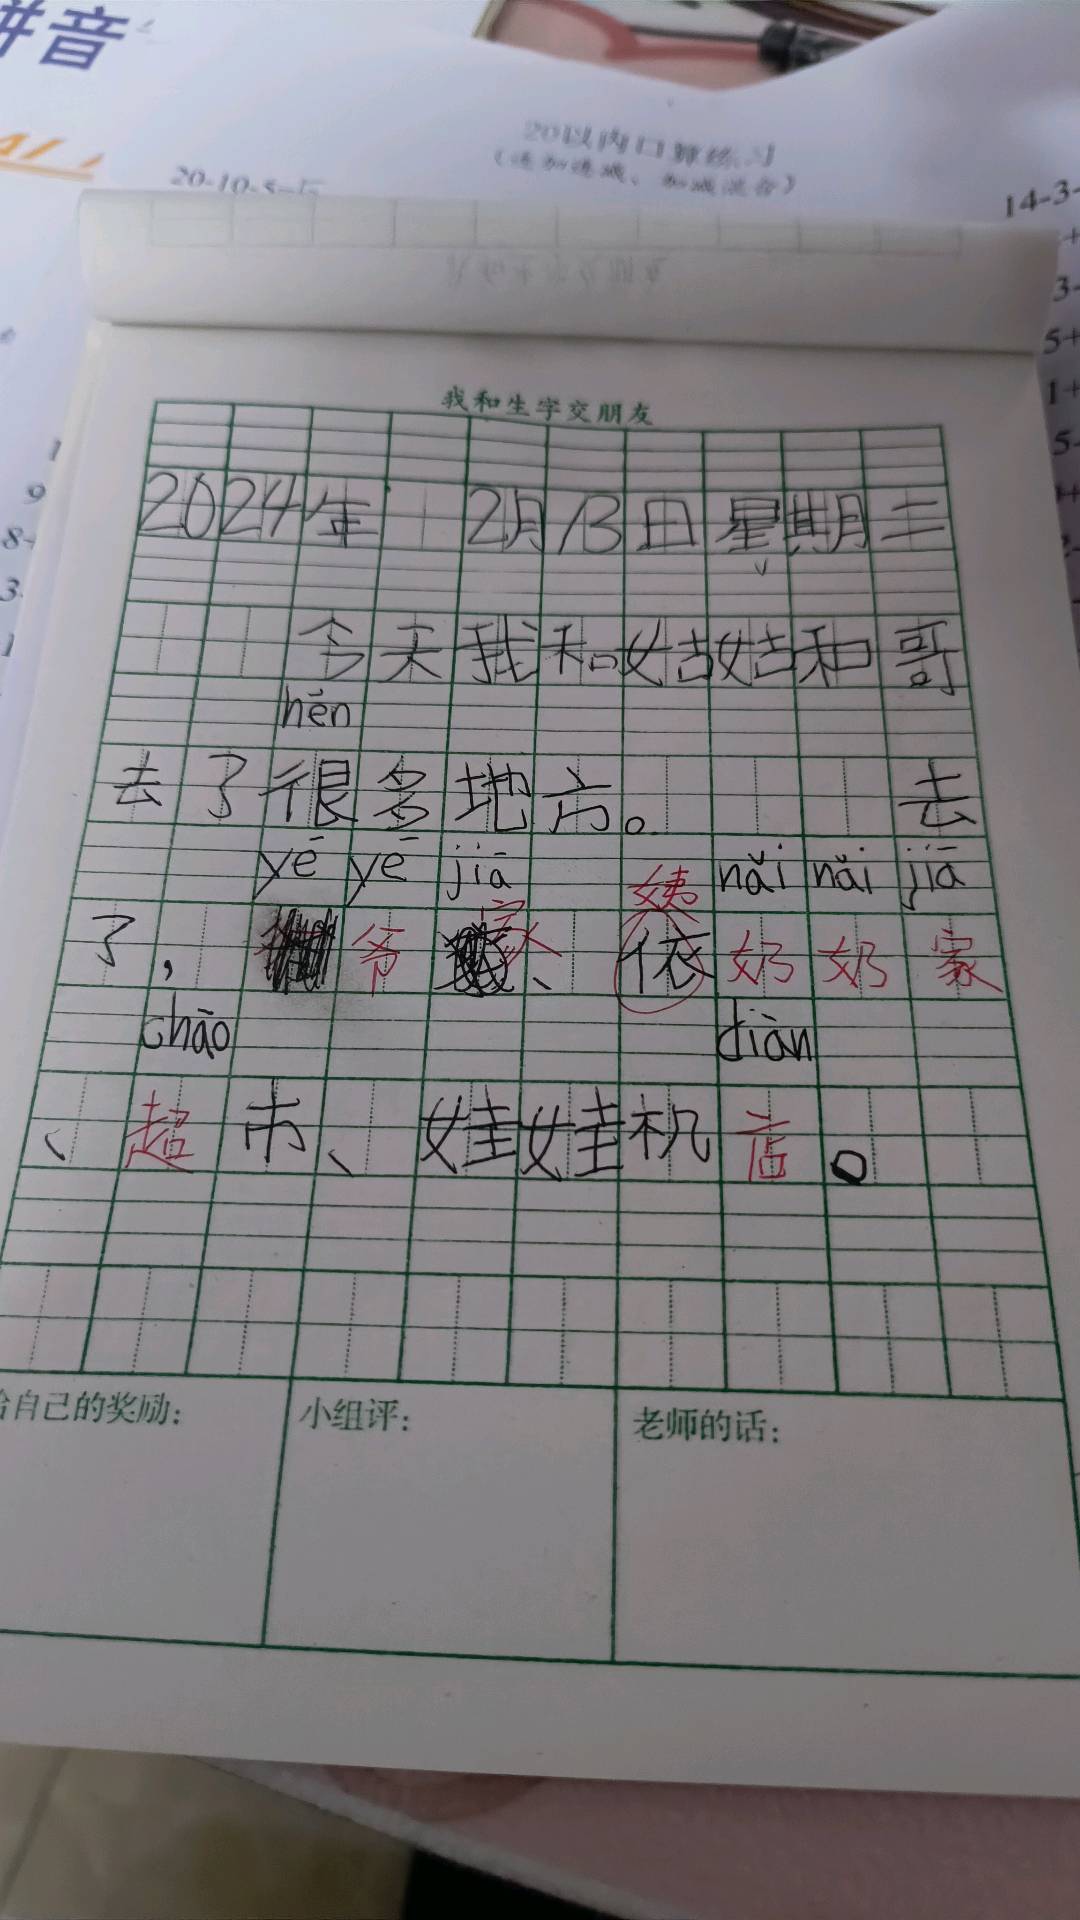 拼音
20以内口算练习
(连加连减、加减混合)
20-10-5=
14-3-
我和生字交朋友
2024年 2月13日星期二
今天我和姑姑和哥
hěn
去了很多地方。 去
yē yē jiā 姨 nǎi nǎi jiā
了, 爷家、依奶奶家
chāo diàn
、超市、娃娃机店。
给自己的奖励: 小组评: 老师的话: